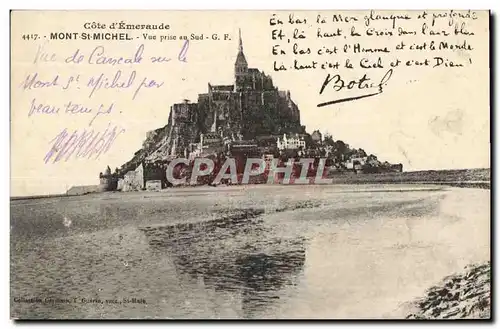 Côte d'Émeraude
4417. - MONT-St-MICHEL - Vue prise au Sud - G. F.
En bas la Mer glauque et profonde
Et, là haut, la Croix dans l'air bleu
En bas c'est l'Homme et c'est le Monde
Là haut c'est le Ciel et c'est Dieu !
Botrel
Vue de Cancale ou le
Mont St Michel par
beau temps.
CAPHILI
Collections Germain, F. Guérin, succ., St-Malo